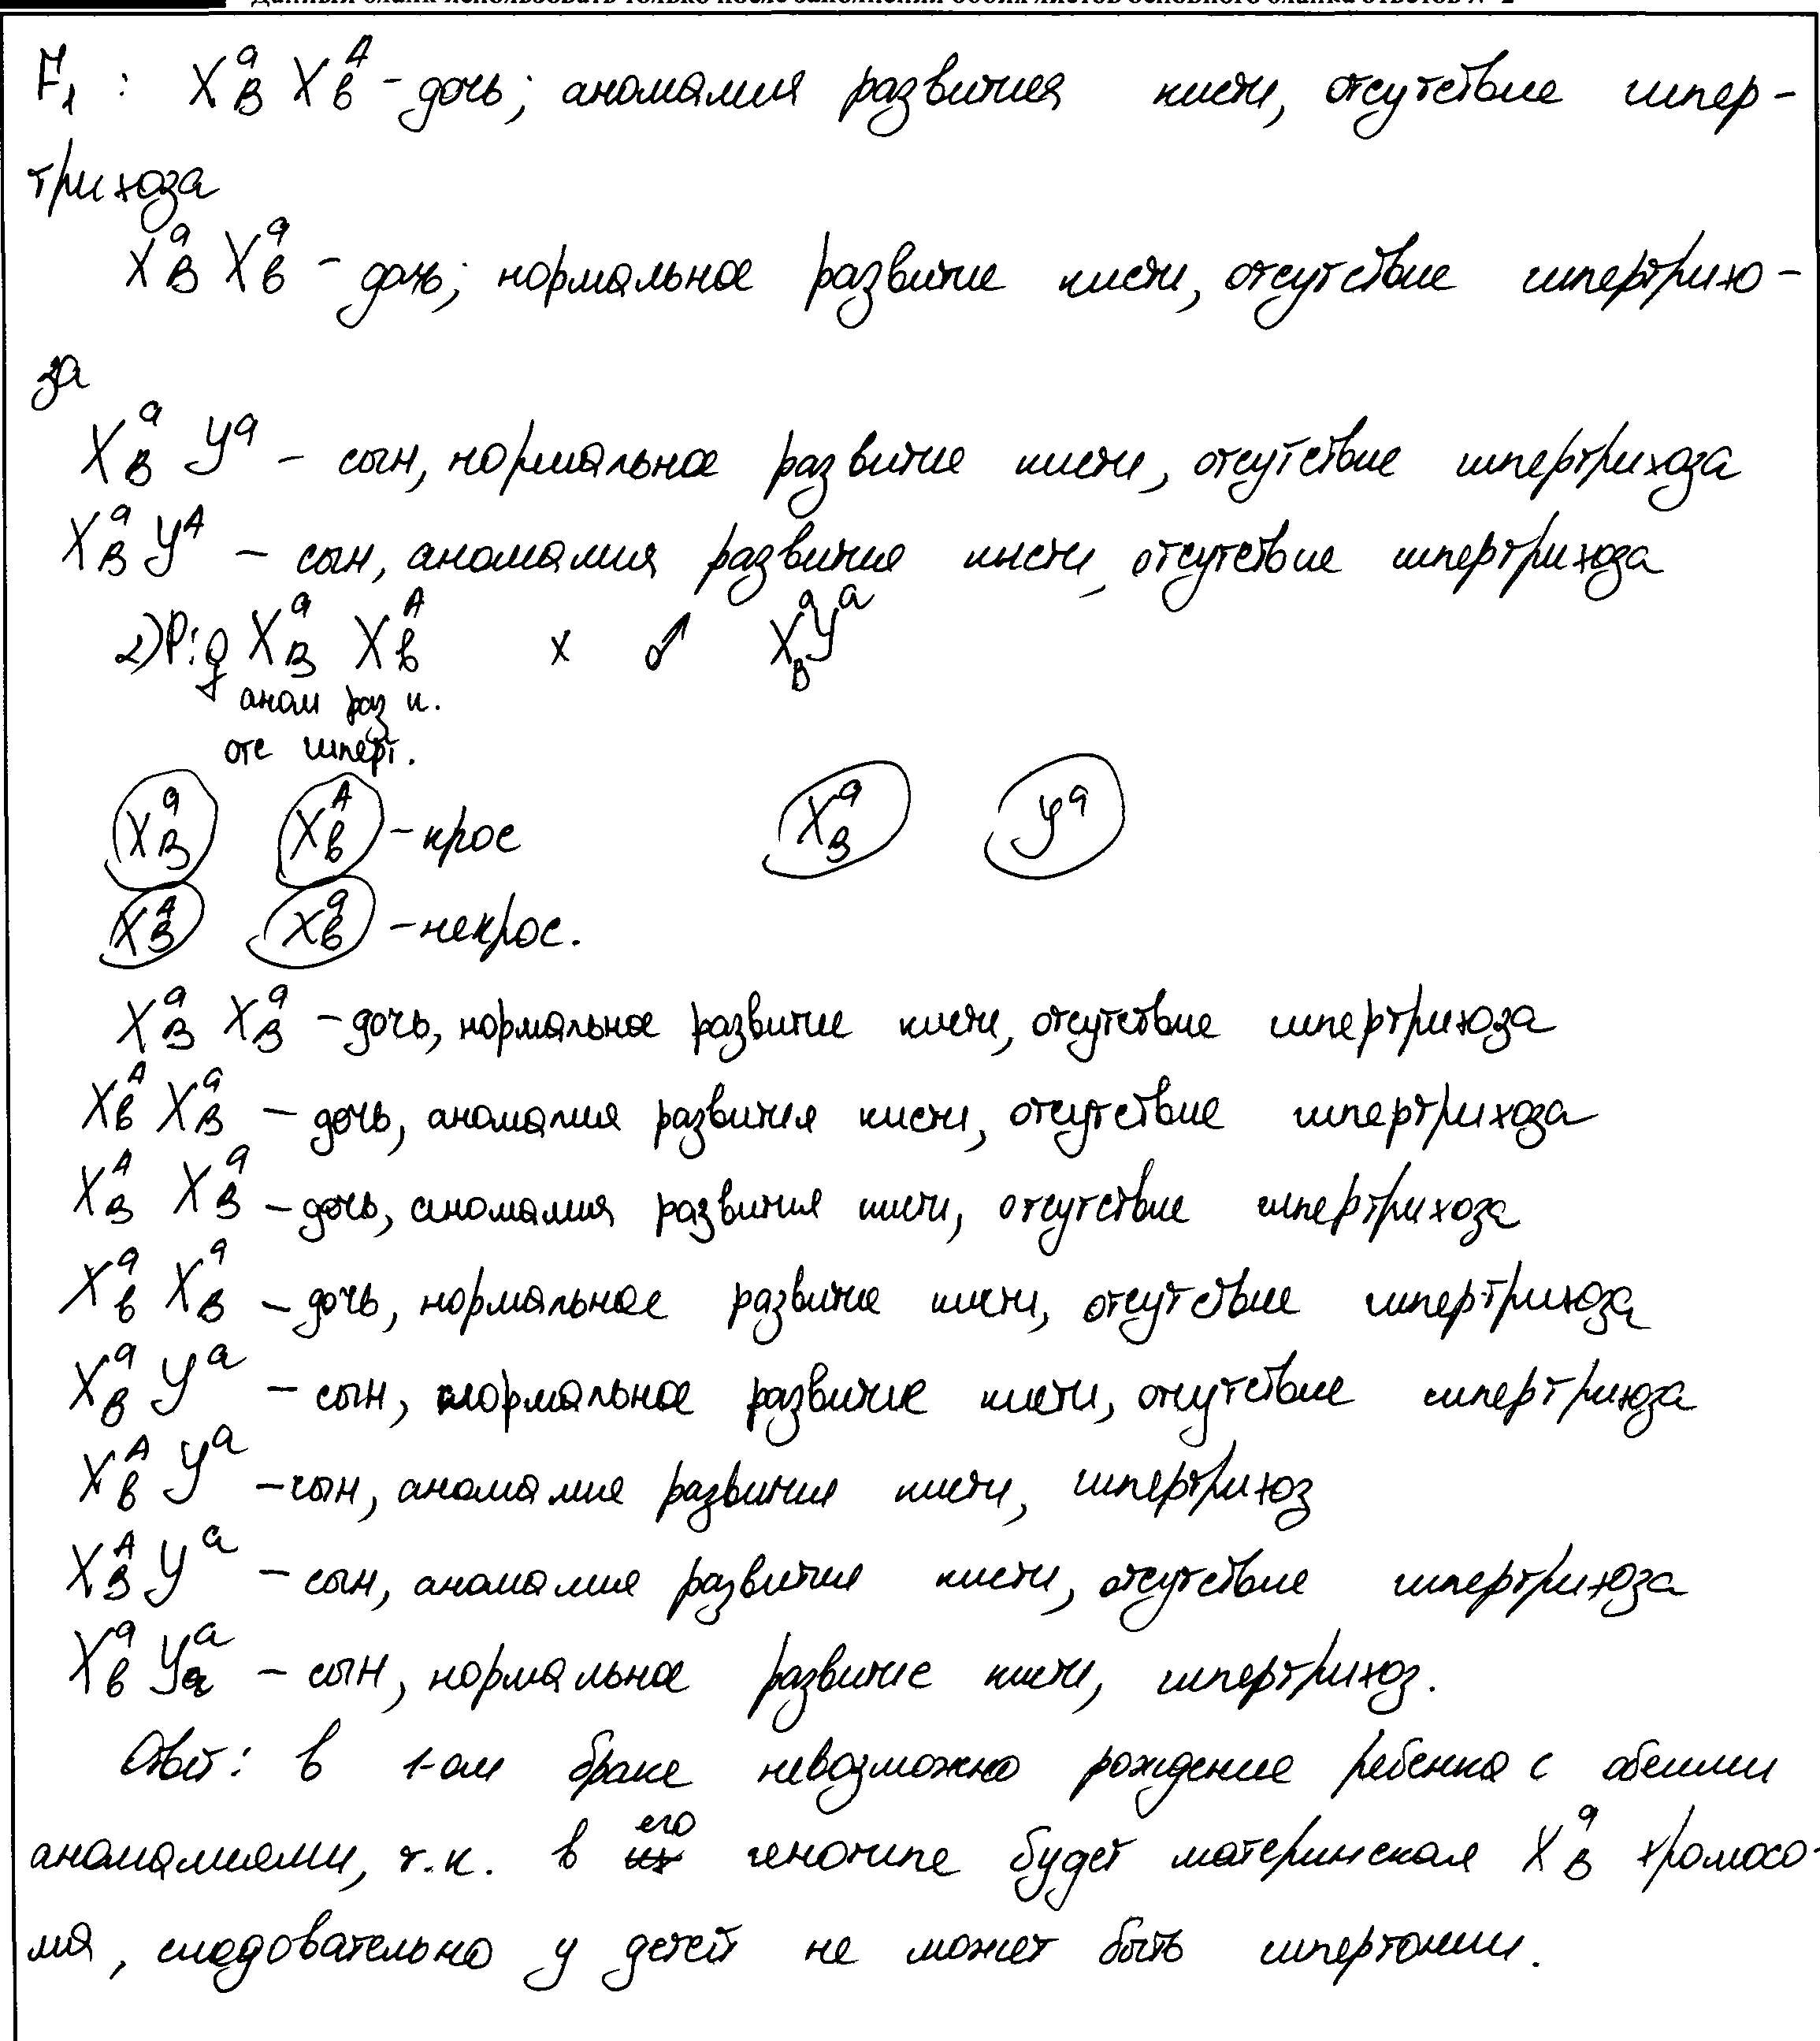 Данный бланк использовать только после заполнения обоих листов основного бланка ответов № 2
F₁ : XᵃB Xᴬb - дочь; аномалия развития кисти, отсутствие гипер-
трихоза
XᵃB Xᵃb - дочь; нормальное развитие кисти, отсутствие гипертрихо-
за
XᵃB Yᵃ - сын, нормальное развитие кисти, отсутствие гипертрихоза
XᵃB Yᴬ - сын, аномалия развития кисти, отсутствие гипертрихоза
2) P: ♀ XᵃB Xᴬb x ♂ XᵃB Yᵃ
аном раз к.
отс гиперт.
XᵃB Xᴬb - крос XᵃB Yᵃ
XᴬB Xᵃb - некрос.
XᵃB XᵃB - дочь, нормальное развитие кисти, отсутствие гипертрихоза
Xᴬb XᵃB - дочь, аномалия развития кисти, отсутствие гипертрихоза
XᴬB XᵃB - дочь, аномалия развития кисти, отсутствие гипертрихоза
Xᵃb XᵃB - дочь, нормальное развитие кисти, отсутствие гипертрихоза
XᵃB Yᵃ - сын, нормальное развитие кисти, отсутствие гипертрихоза
Xᴬb Yᵃ - сын, аномалия развития кисти, гипертрихоз
XᴬB Yᵃ - сын, аномалия развития кисти, отсутствие гипертрихоза
Xᵃb Yᵃ - сын, нормальное развитие кисти, гипертрихоз.
Ответ: в 1-ом браке невозможно рождение ребенка с обеими
аномалиями, т.к. в его генотипе будет материнская XᵃB хромосо-
ма, следовательно у детей не может быть гипертонии.